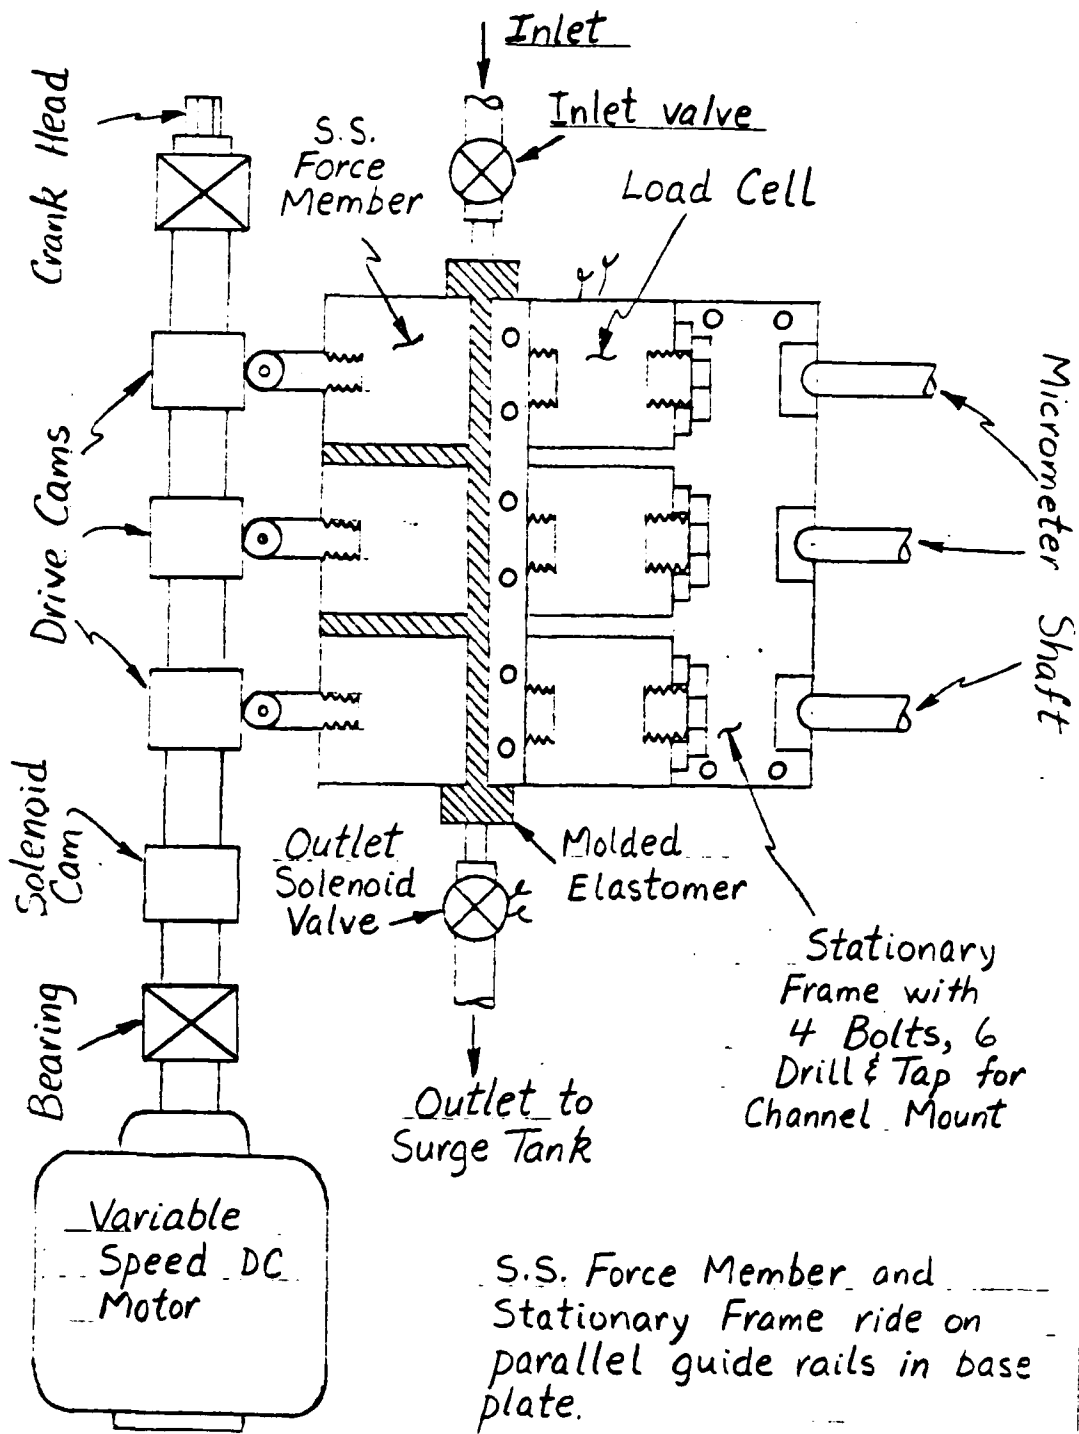 Inlet
Inlet valve
S.S.
Force
Member
Load Cell
Crank Head
Drive Cams
Micrometer Shaft
Solenoid
Cam
Outlet
Solenoid
Valve
Molded
Elastomer
Stationary
Frame with
4 Bolts, 6
Drill & Tap for
Channel Mount
Bearing
Outlet to
Surge Tank
Variable
Speed DC
Motor
S.S. Force Member and
Stationary Frame ride on
parallel guide rails in base
plate.